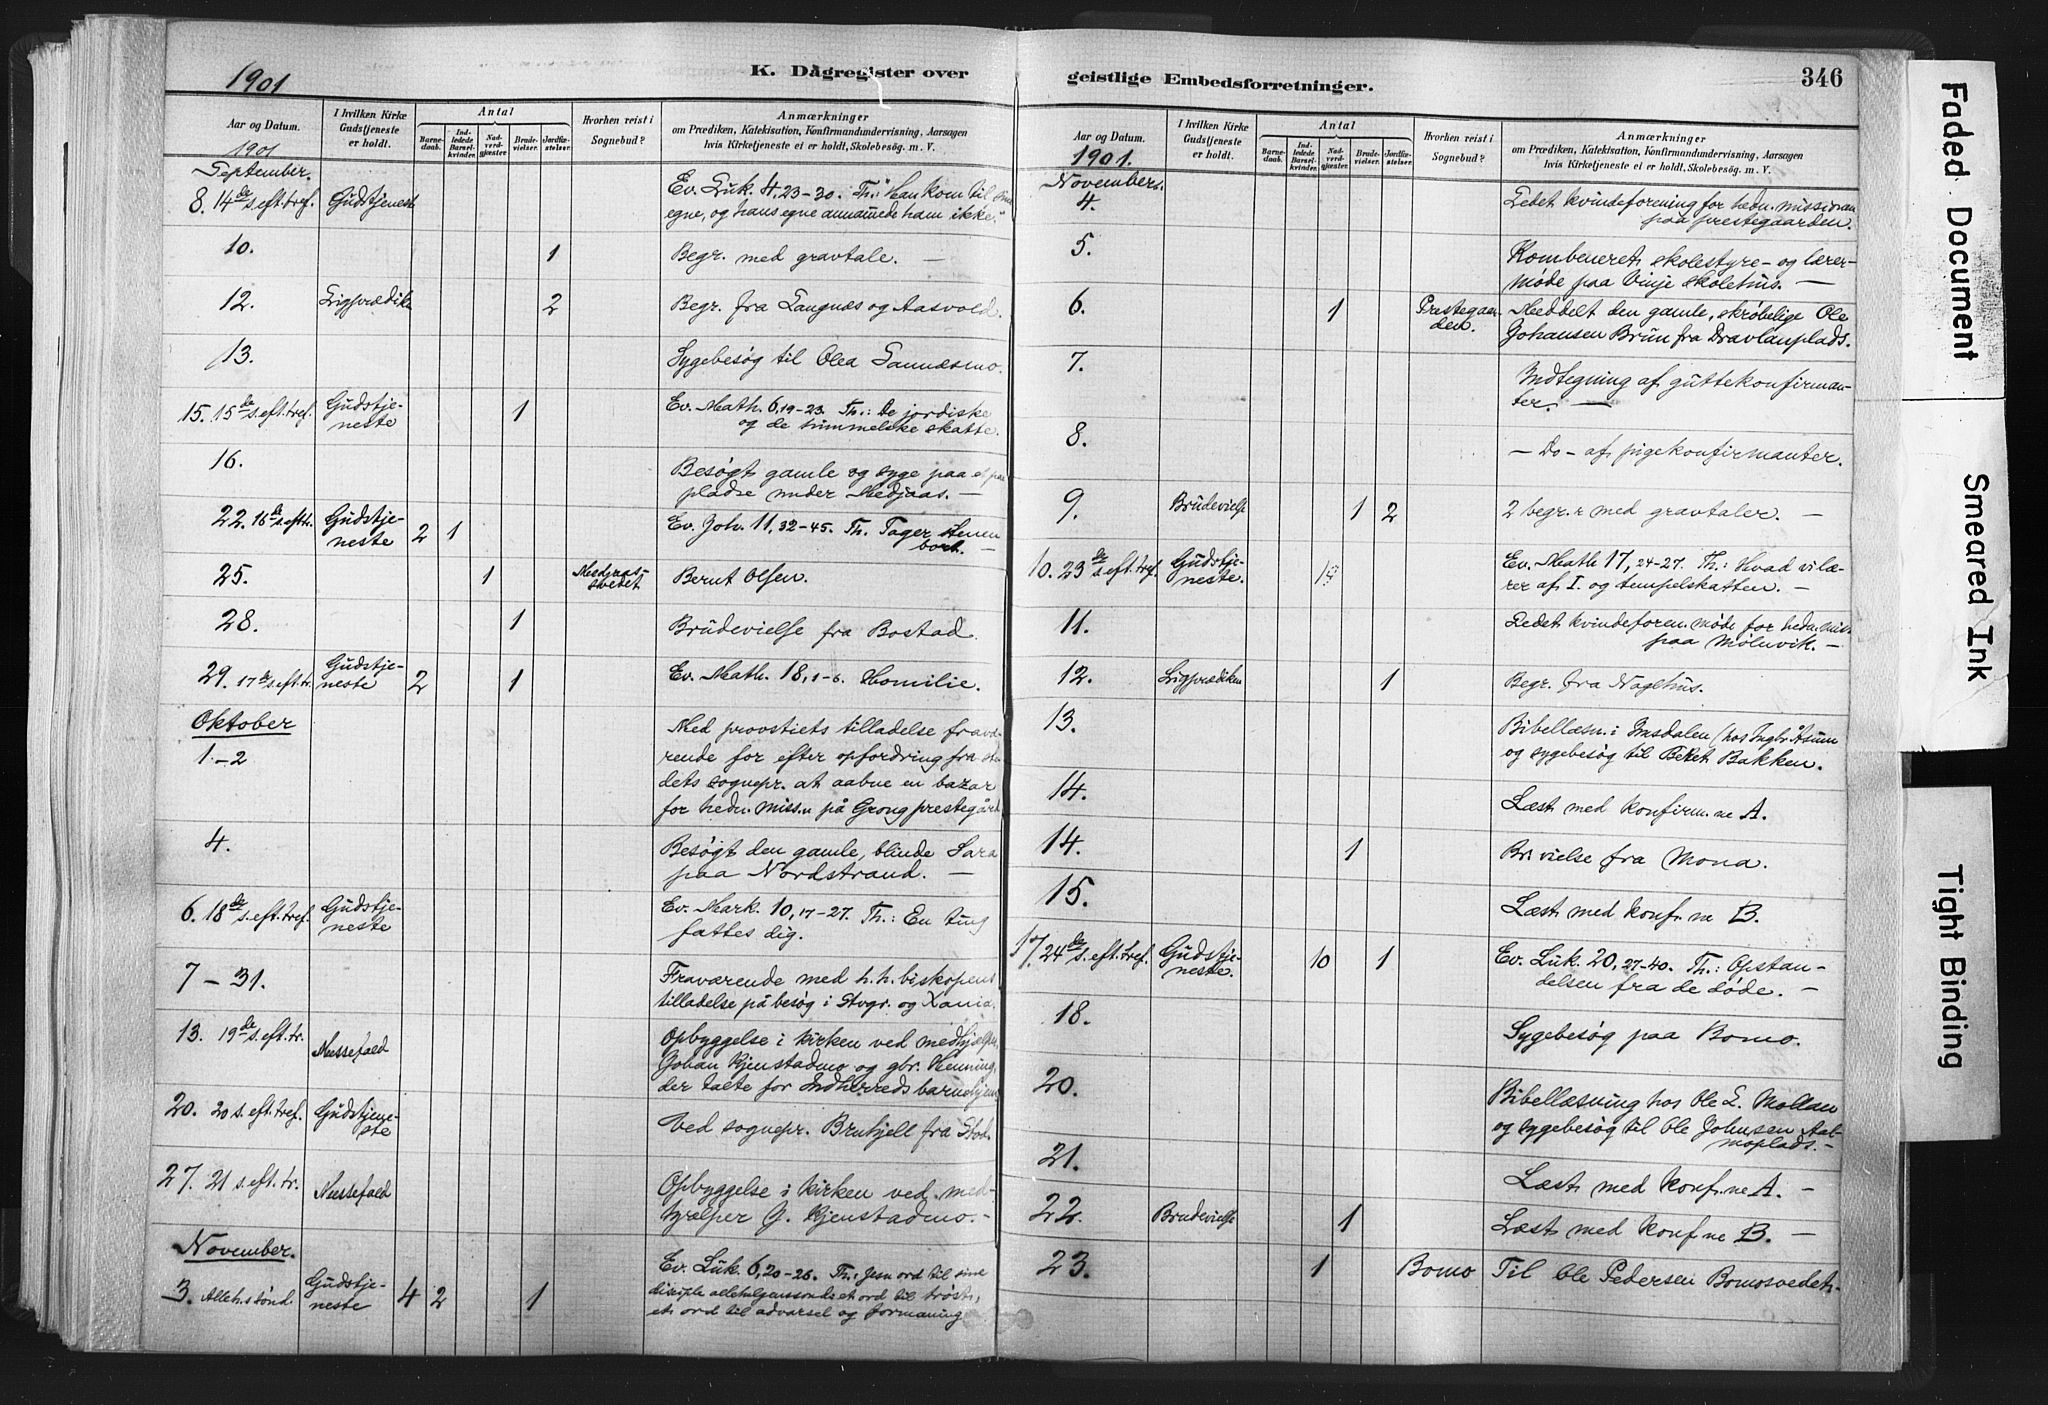 1901
K. Dagregister over
Aar og Datum.
I hvilken Kirke
Gudstjeneste
er holdt.
Antal
Barne-
daab.
Ind-
ledede
Barsel-
kvinder.
Nad-
verd-
gjæster.
Brude-
vielser.
Jordfæ-
stelser.
Hvorhen reist i
Sognebud?
Anmærkninger
om Prædiken, Katekisation, Konfirmandundervisning, Aarsagen
hvis Kirketjeneste ei er holdt, Skolebesøg. m. V.
1901
September.
8. 14de s. eft. tref. Gudstjeneste Ev. Luk. 4, 23-30. Th.: "Han kom til sine
egne, og hans egne annamede ham ikke."
10. 1 Begr. med gravtale. —
12. Ligprædike 2 Begr. fra Langnæs og Aasvold.
13. Sygebesøg til Olea
15. 15de s. eft. tref. Gudstje-
neste 1 Ev. Math. 6, 19-23. Th.: De jordiske
og de himmelske skatte.
16. Besøgt gamle og syge paa et par
pladse under Medjaas. —
22. 16de s. eft. tr. Gudstje-
neste 2 1 Ev. Joh. 11, 32-45. Th. Tager stenen
bort. —
25. 1 Medjaas-
svedet Bernt Olsen.
28. 1 Brudevielse fra Bostad.
29. 17de s. eft. tr. Gudstje-
neste 2 1 Ev. Math. 18, 1-6. Homilie.
Oktober
1-2 Med provstiets tilladelse fravæ-
rende for efter opfordring fra ste-
dets sognepr. at aabne en bazar
for hedn. miss.n på Grong prestegård
4. Besøgt den gamle, blinde Sara
paa Nordstrand. —
6. 18de s. eft. tref. Gudstje-
neste Ev. Mark. 10, 17-27. Th.: En ting
fattes dig.
7 - 31. Fraværende med h. h. biskopens
tilladelse på besøg i Stvgr. og Xania.
13. 19de s. eft. tr. Messefald Opbyggelse i kirken ved medhjælper
Johan Kjenstadmo og gbr. Henning,
der talte for Indherreds barnehjem
20. 20 s. eft. tref. Gudstjene-
ste Ved sognepr. Bruhjell fra Stod.
27. 21 s. eft. tr. Messefald Opbyggelse i kirken ved med-
hjælper J. Kjenstadmo. —
November.
3. Alleh. sønd. Gudstje-
neste 4 2 1 Ev. Luk. 6, 20-26. Th.: Jesu ord til sine
disciple allehelgenssønd: et ord til trøst,
et ord til advarsel og formaning
geistlige Embedsforretninger.
346
Aar og Datum.
I hvilken Kirke
Gudstjeneste
er holdt.
Antal
Barne-
daab.
Ind-
ledede
Barsel-
kvinder.
Nad-
verd-
gjæster.
Brude-
vielser.
Jordfæ-
stelser.
Hvorhen reist i
Sognebud?
Anmærkninger
om Prædiken, Katekisation, Konfirmandundervisning, Aarsagen
hvis Kirketjeneste ei er holdt, Skolebesøg. m. V.
1901.
November.
4. Ledet kvindeforening for hedn. missionen
paa prestegaarden.
5. Kombeneret skolestyre- og lærer-
møde paa Vinje skolehus. —
6. 1 Prestegaar-
den. Meddelt den gamle, skrøbelige Ole
Johansen Brun fra Dravlanplads.
7. Indtegning af guttekonfirman-
ter. —
8. — Do — af pigekonfirmanter.
9. Brudevielse 1 2 2 begr.r med gravtaler. —
10. 23de s. eft. tref. Gudstje-
neste. Ev. Math 17, 24-27. Th.: Hvad vi læ-
rer af I. og tempelskatten. —
11. Ledet kvindeforen. møde for hedn. miss.
paa Moluvik. —
12. Ligprædiken 1 Begr. fra Naglhus.
13. Bibellæsn. i Imsdalen (hos Ingbr. Åsum
og sygebesøg til Beret Bakken.
14. Læst med konfirm.ne A.
14. 1 Br. vielse fra Mona.
15. Læst med konf.ne B.
17. 24de s. eft. tref. Gudstje-
neste. 10 1 Ev. Luk. 20, 27-40. Th.: Opstan-
delsen fra de døde. —
18. Sygebesøg paa Bomo.
20. Bibellæsning hos Ole L. Mollan
og sygebesøg til Ole Johnsen Aal-
moplads. —
21. Læst med konf.ne A. —
22. Brudevielse 1 Læst med konf.ne B. —
23. 1 Bomo Til Ole Pedersen Bomosvedet.
Faded Document
Smeared Ink
Tight Binding